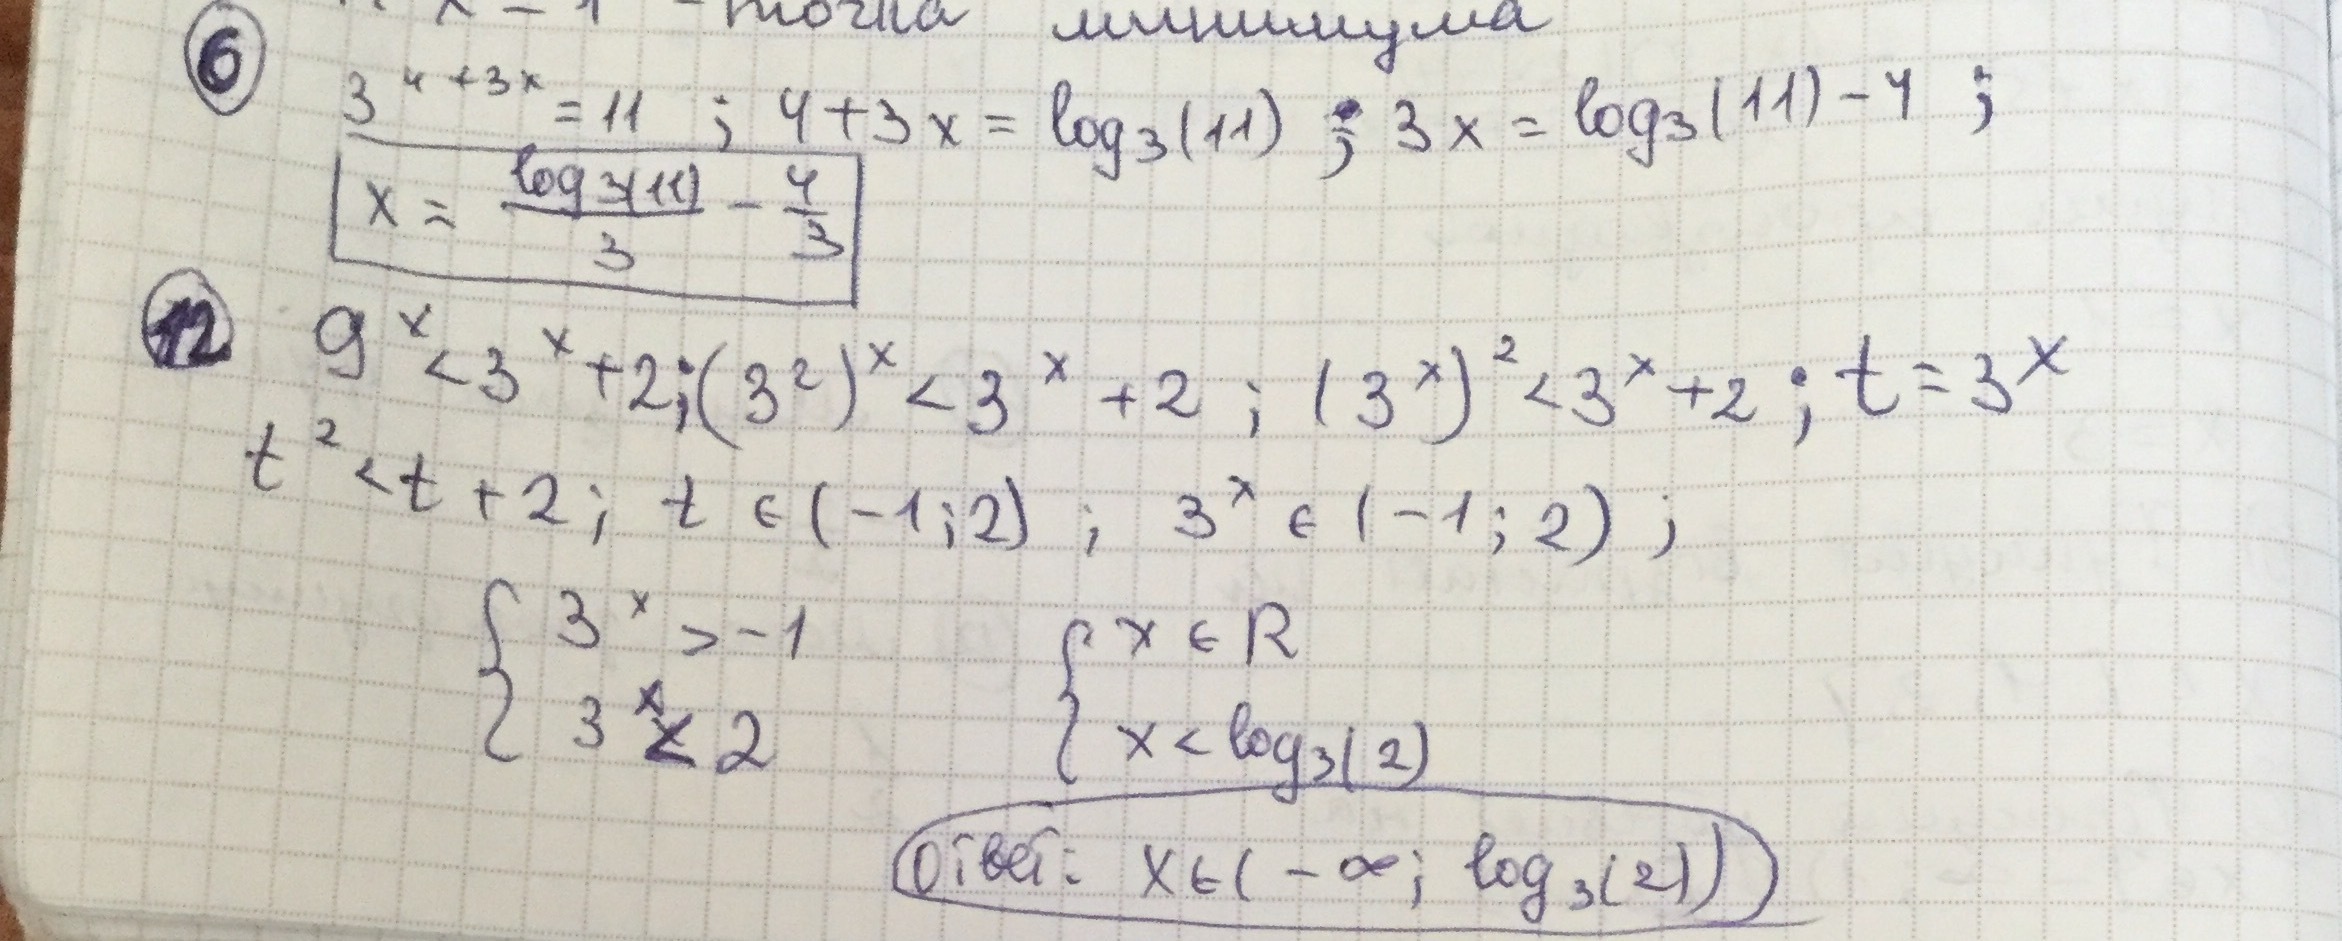 x = 1 - точка минимума
6
3^{4+3x} = 11 ; 4+3x = log₃(11) ; 3x = log₃(11) - 4 ;
x = \frac{log₃(11)}{3} - \frac{4}{3}
12 9^x < 3^x + 2 ; (3²)^x < 3^x + 2 ; (3^x)² < 3^x + 2 ; t = 3^x
t² < t + 2 ; t ∈ (-1 ; 2) ; 3^x ∈ (-1 ; 2) ;
{ 3^x > -1 { x ∈ R
3^x < 2 x < log₃(2)
Ответ: x ∈ (-∞ ; log₃(2))